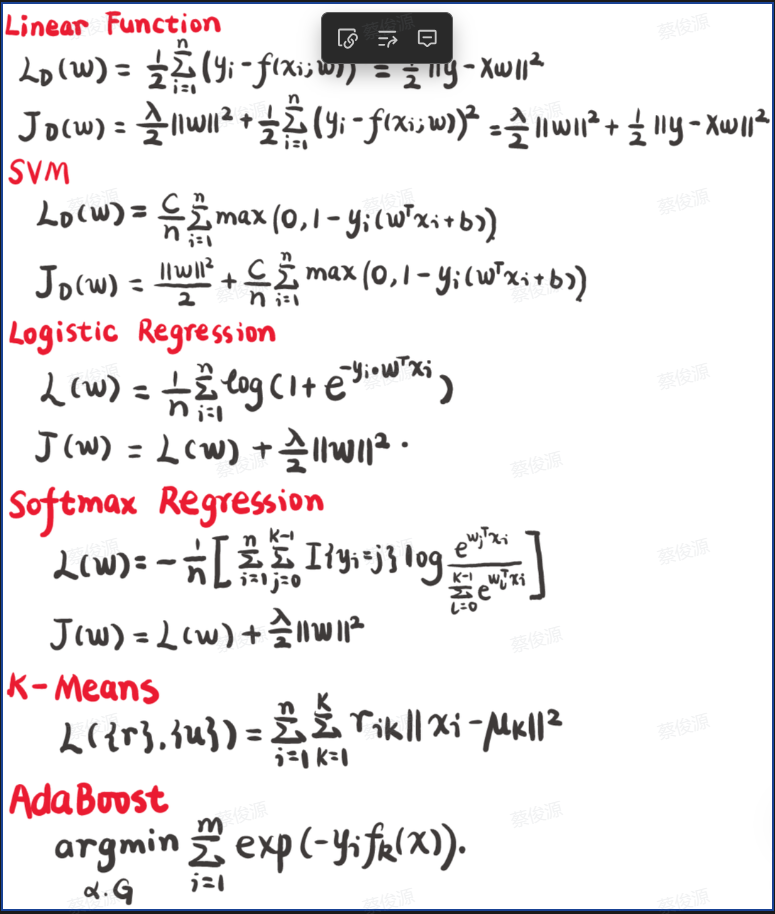 Linear Function
L_D(w) = 1/2 Σ_{i=1}^{n} (y_i - f(x_i; w)) = 1/2 ||y - Xw||²
J_D(w) = λ/2 ||w||² + 1/2 Σ_{i=1}^{n} (y_i - f(x_i; w))² = λ/2 ||w||² + 1/2 ||y - Xw||²
SVM
L_D(w) = C/n Σ_{i=1}^{n} max(0, 1 - y_i(w^T x_i + b))
J_D(w) = ||w||²/2 + C/n Σ_{i=1}^{n} max(0, 1 - y_i(w^T x_i + b))
Logistic Regression
L(w) = 1/n Σ_{i=1}^{n} log(1 + e^{-y_i • w^T x_i})
J(w) = L(w) + λ/2 ||w||² .
Softmax Regression
L(w) = - 1/n [ Σ_{i=1}^{n} Σ_{j=0}^{K-1} I{y_i = j} log e^{w_j^T x_i} / Σ_{l=0}^{K-1} e^{w_l^T x_i} ]
J(w) = L(w) + λ/2 ||w||²
K-Means
L({r}, {u}) = Σ_{i=1}^{n} Σ_{k=1}^{K} r_{ik} || x_i - μ_k ||²
AdaBoost
argmin_{α.G} Σ_{i=1}^{m} exp(-y_i f_k(x)).
蔡俊源